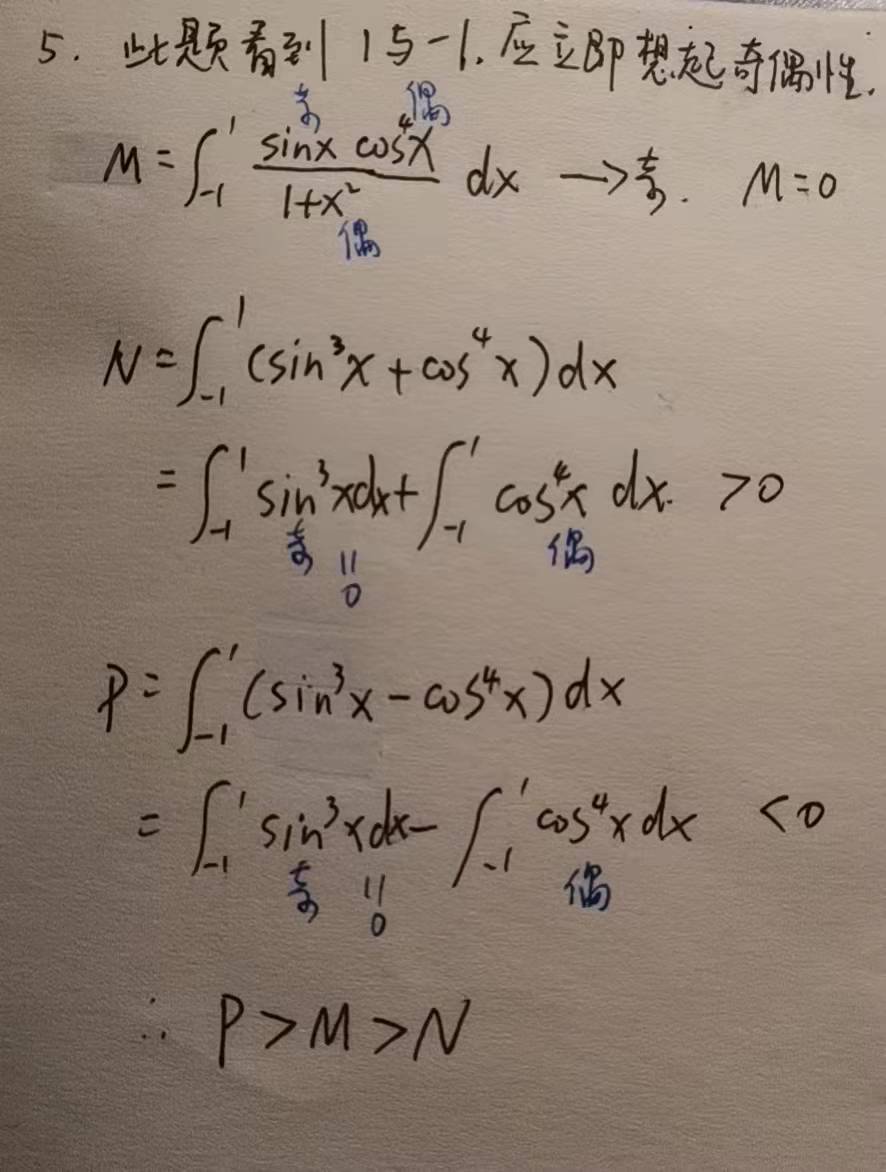 5. 此题看到 1与-1. 应立即想起奇偶性.
奇 偶
M = ∫_{-1}^{1} \frac{sinx cos⁴x}{1+x²} dx → 奇. M=0
偶
N = ∫_{-1}^{1} (sin³x + cos⁴x) dx
= ∫_{-1}^{1} sin³xdx + ∫_{-1}^{1} cos⁴x dx. >0
奇 || 偶
0
P = ∫_{-1}^{1} (sin³x - cos⁴x) dx
= ∫_{-1}^{1} sin³xdx - ∫_{-1}^{1} cos⁴x dx <0
奇 || 偶
0
∴ P > M > N